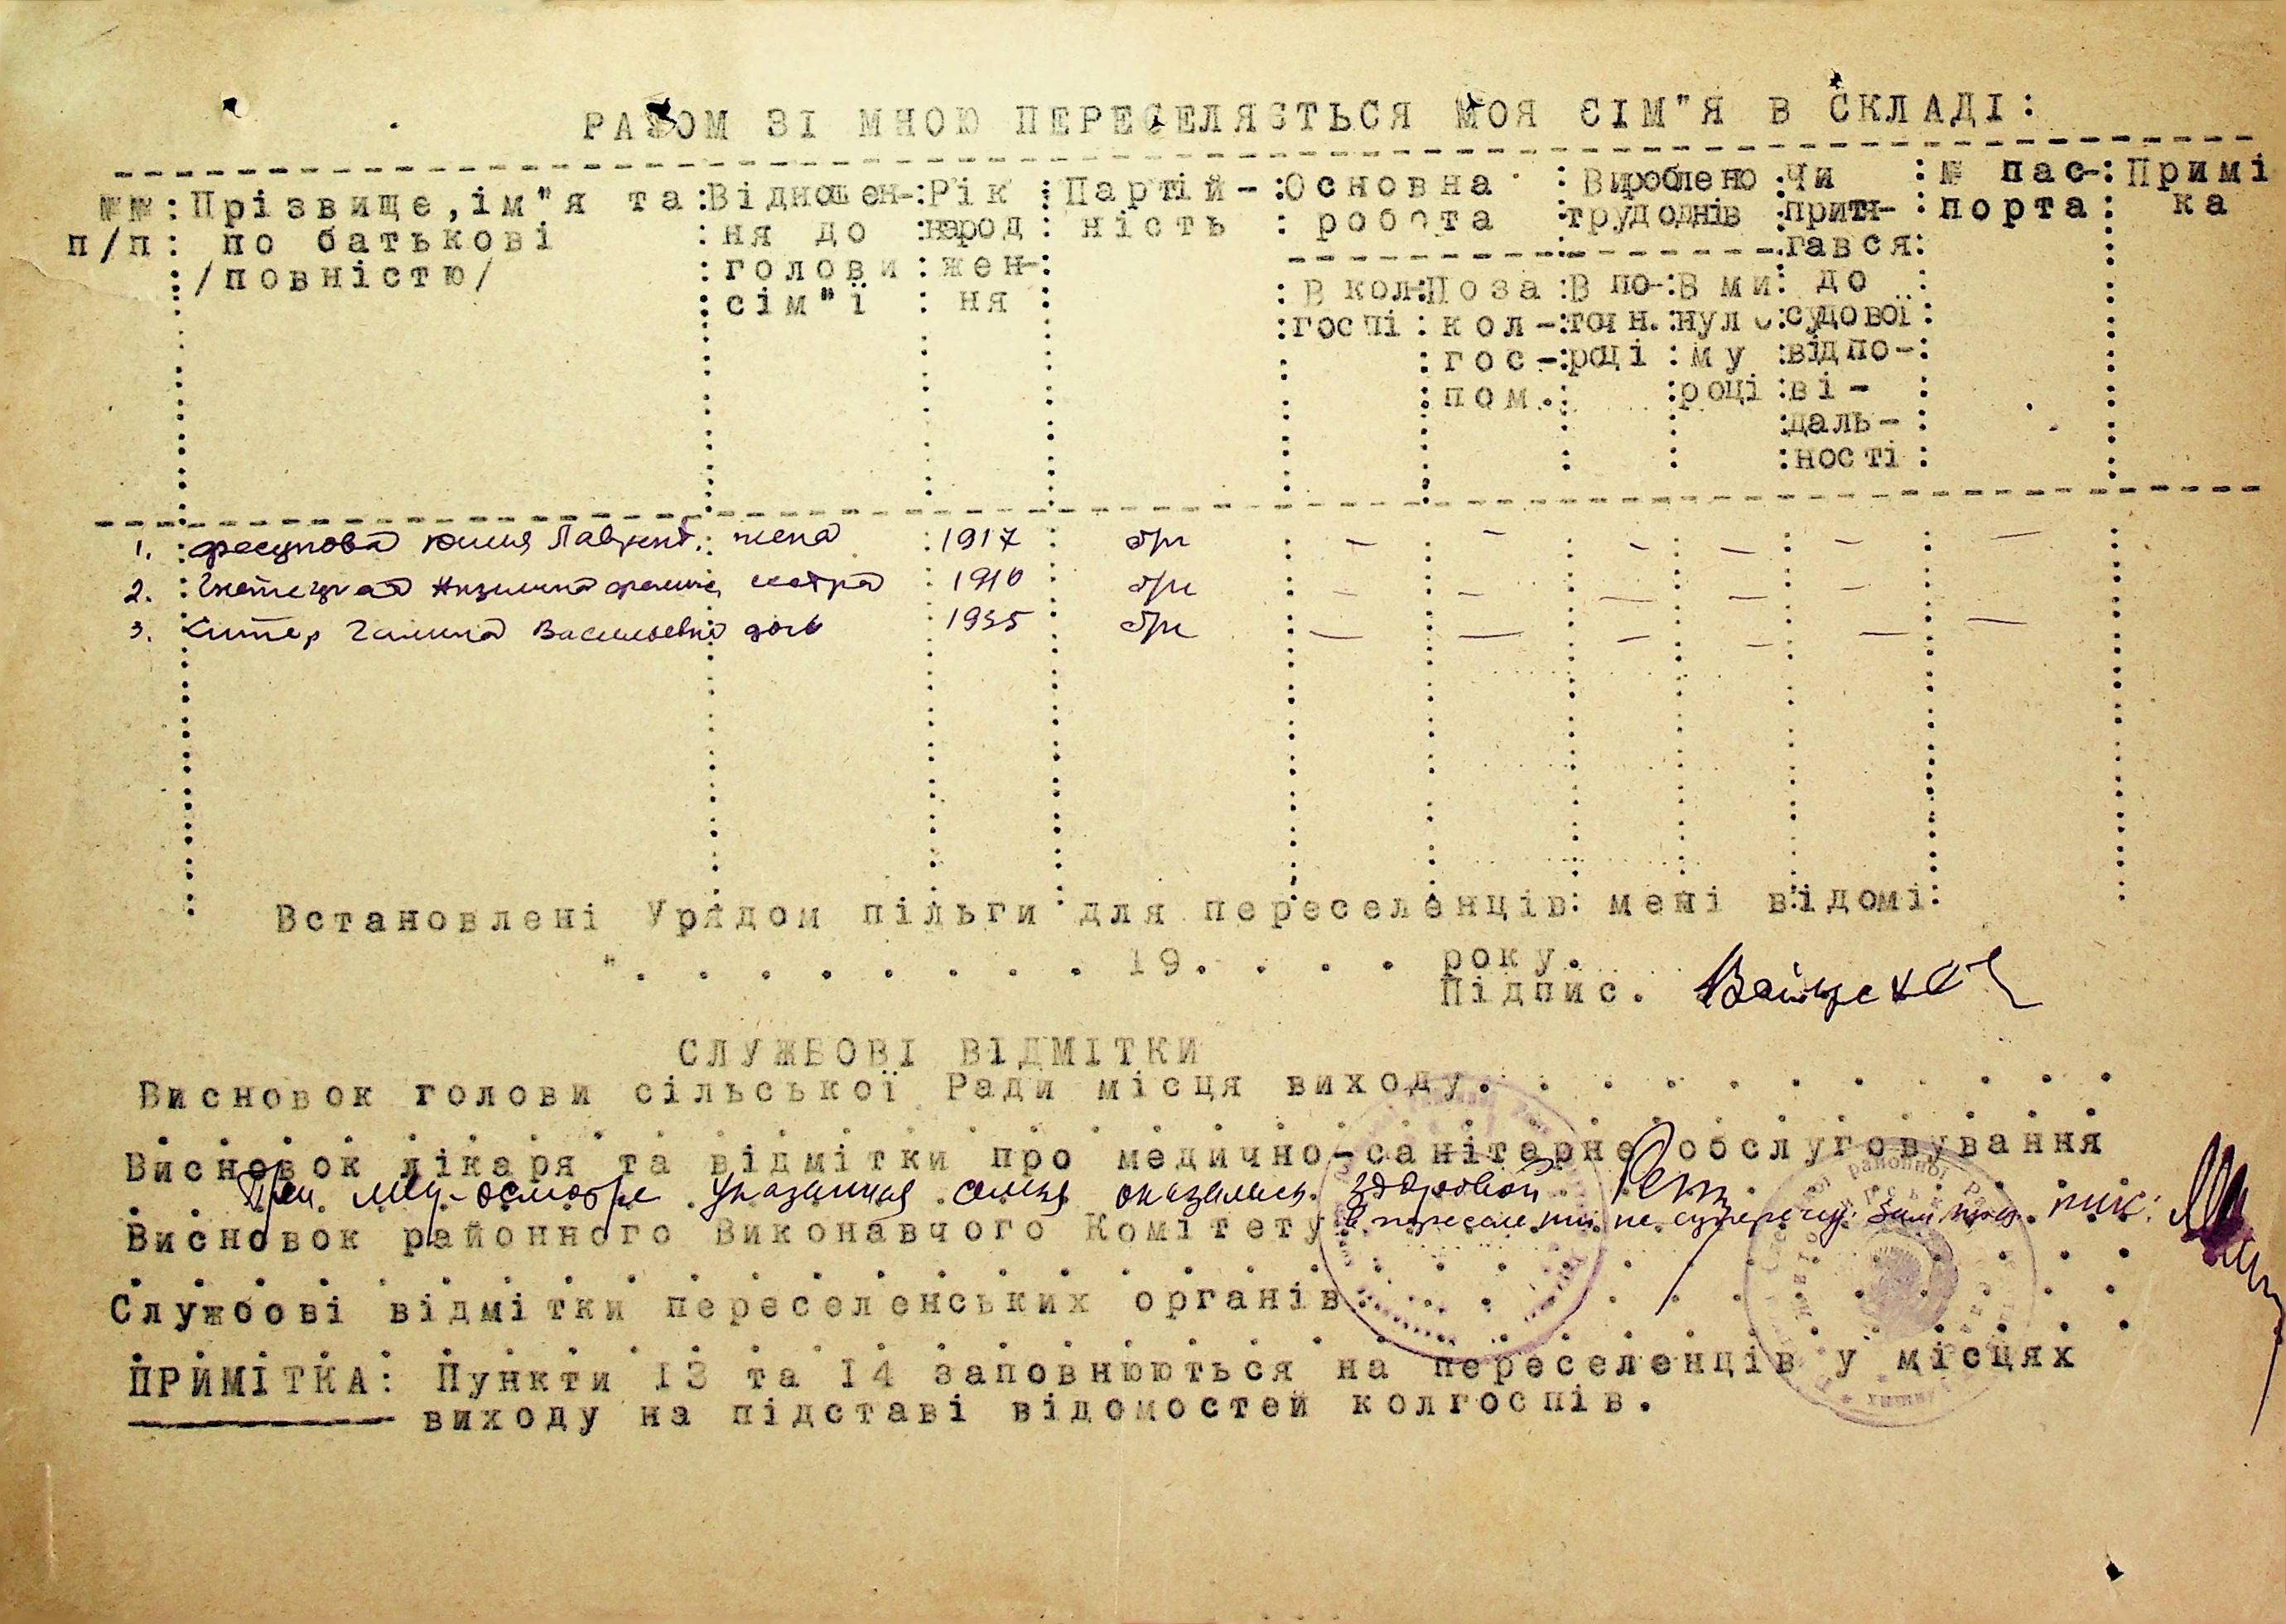 РАЗОМ ЗІ МНОЮ ПЕРЕСЕЛЯЄТЬСЯ МОЯ СІМ"Я В СКЛАДІ:
№№ п/п
Прізвище,ім"я та по батькові /повністю/
Відношен-ня до голови сім"ї
Рік народ жен-ня
Партій-ність
Основна робота
В кол-госпі
Поза кол-гос-пом.
Вироблено трудоднів
В по-точн. році
В ми нуло му році
Чи притя-гався до судової відпо-ві-даль-ності
№ пас-порта
Примі ка
1. Юлия Лаврент. жена 1917 б/п — — — — — —
2. сестра 1910 б/п — — — — — —
3. Галина Васильевна дочь 1935 б/п — — — — — —
Встановлені Урядом пільги для переселенців мені відомі
". . . . . . . . 19. . . . року.
Підпис.
СЛУЖБОВІ ВІДМІТКИ
Висновок голови сільської Ради місця виходу. . . . . . . . .
Висновок лікаря та відмітки про медично-санітарне обслуговування
При мед-осмотре указанная семья оказалась здоровой
Висновок районного Виконавчого Комітету
Службові відмітки переселенських органів. . . . . . . . .
ПРИМІТКА: Пункти 13 та 14 заповнюються на переселенців у місцях
виходу на підставі відомостей колгоспів.